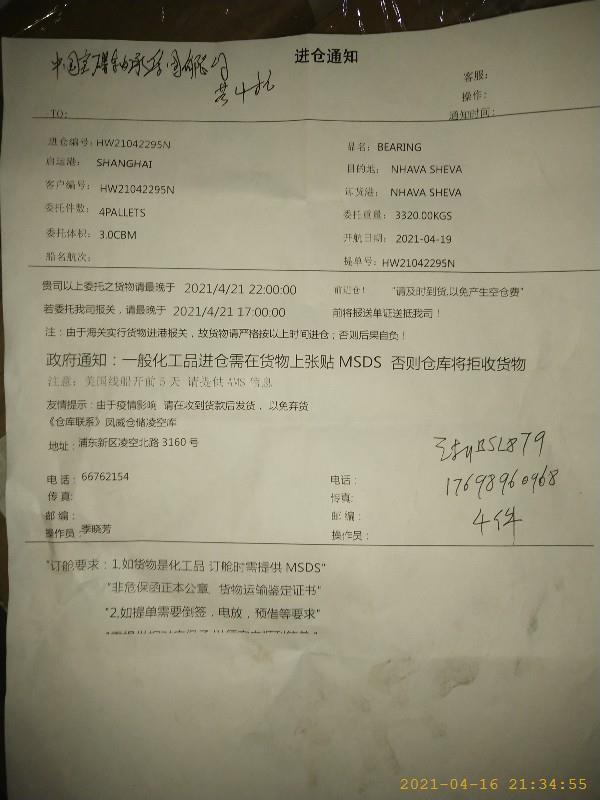 进仓通知
中国
共4托
客服：
操作：
TO:
通知时间：
进仓编号：HW21042295N
品名：BEARING
启运港： SHANGHAI
目的地： NHAVA SHEVA
客户编号： HW21042295N
卸货港： NHAVA SHEVA
委托件数：4PALLETS
委托重量：3320.00KGS
委托体积：3.0CBM
开航日期：2021-04-19
船名航次：
提单号：HW21042295N
贵司以上委托之货物请最晚于 2021/4/21 22:00:00 前进仓！ "请及时到货,以免产生空仓费"
若委托我司报关，请最晚于 2021/4/21 17:00:00 前将报送单证送抵我司！
注：由于海关实行货物进港报关，故货物请严格按以上时间进仓；否则后果自负！
政府通知：一般化工品进仓需在货物上张贴 MSDS 否则仓库将拒收货物
注意：美国线船开前 5 天 请提供 AMS 信息
友情提示：由于疫情影响 请在收到货款后发货，以免弃货
《仓库联系》凤威仓储凌空库
地址：浦东新区凌空北路 3160 号
BSL879
电话：66762154
电话：
17698960968
传真：
传真：
邮编：
邮编：
4件
操作员：李晓芳
操作员：
"订舱要求：1.如货物是化工品 订舱时需提供 MSDS"
"非危保函正本公章，货物运输鉴定证书"
"2.如提单需要倒签，电放，预借等要求"
2021-04-16 21:34:55